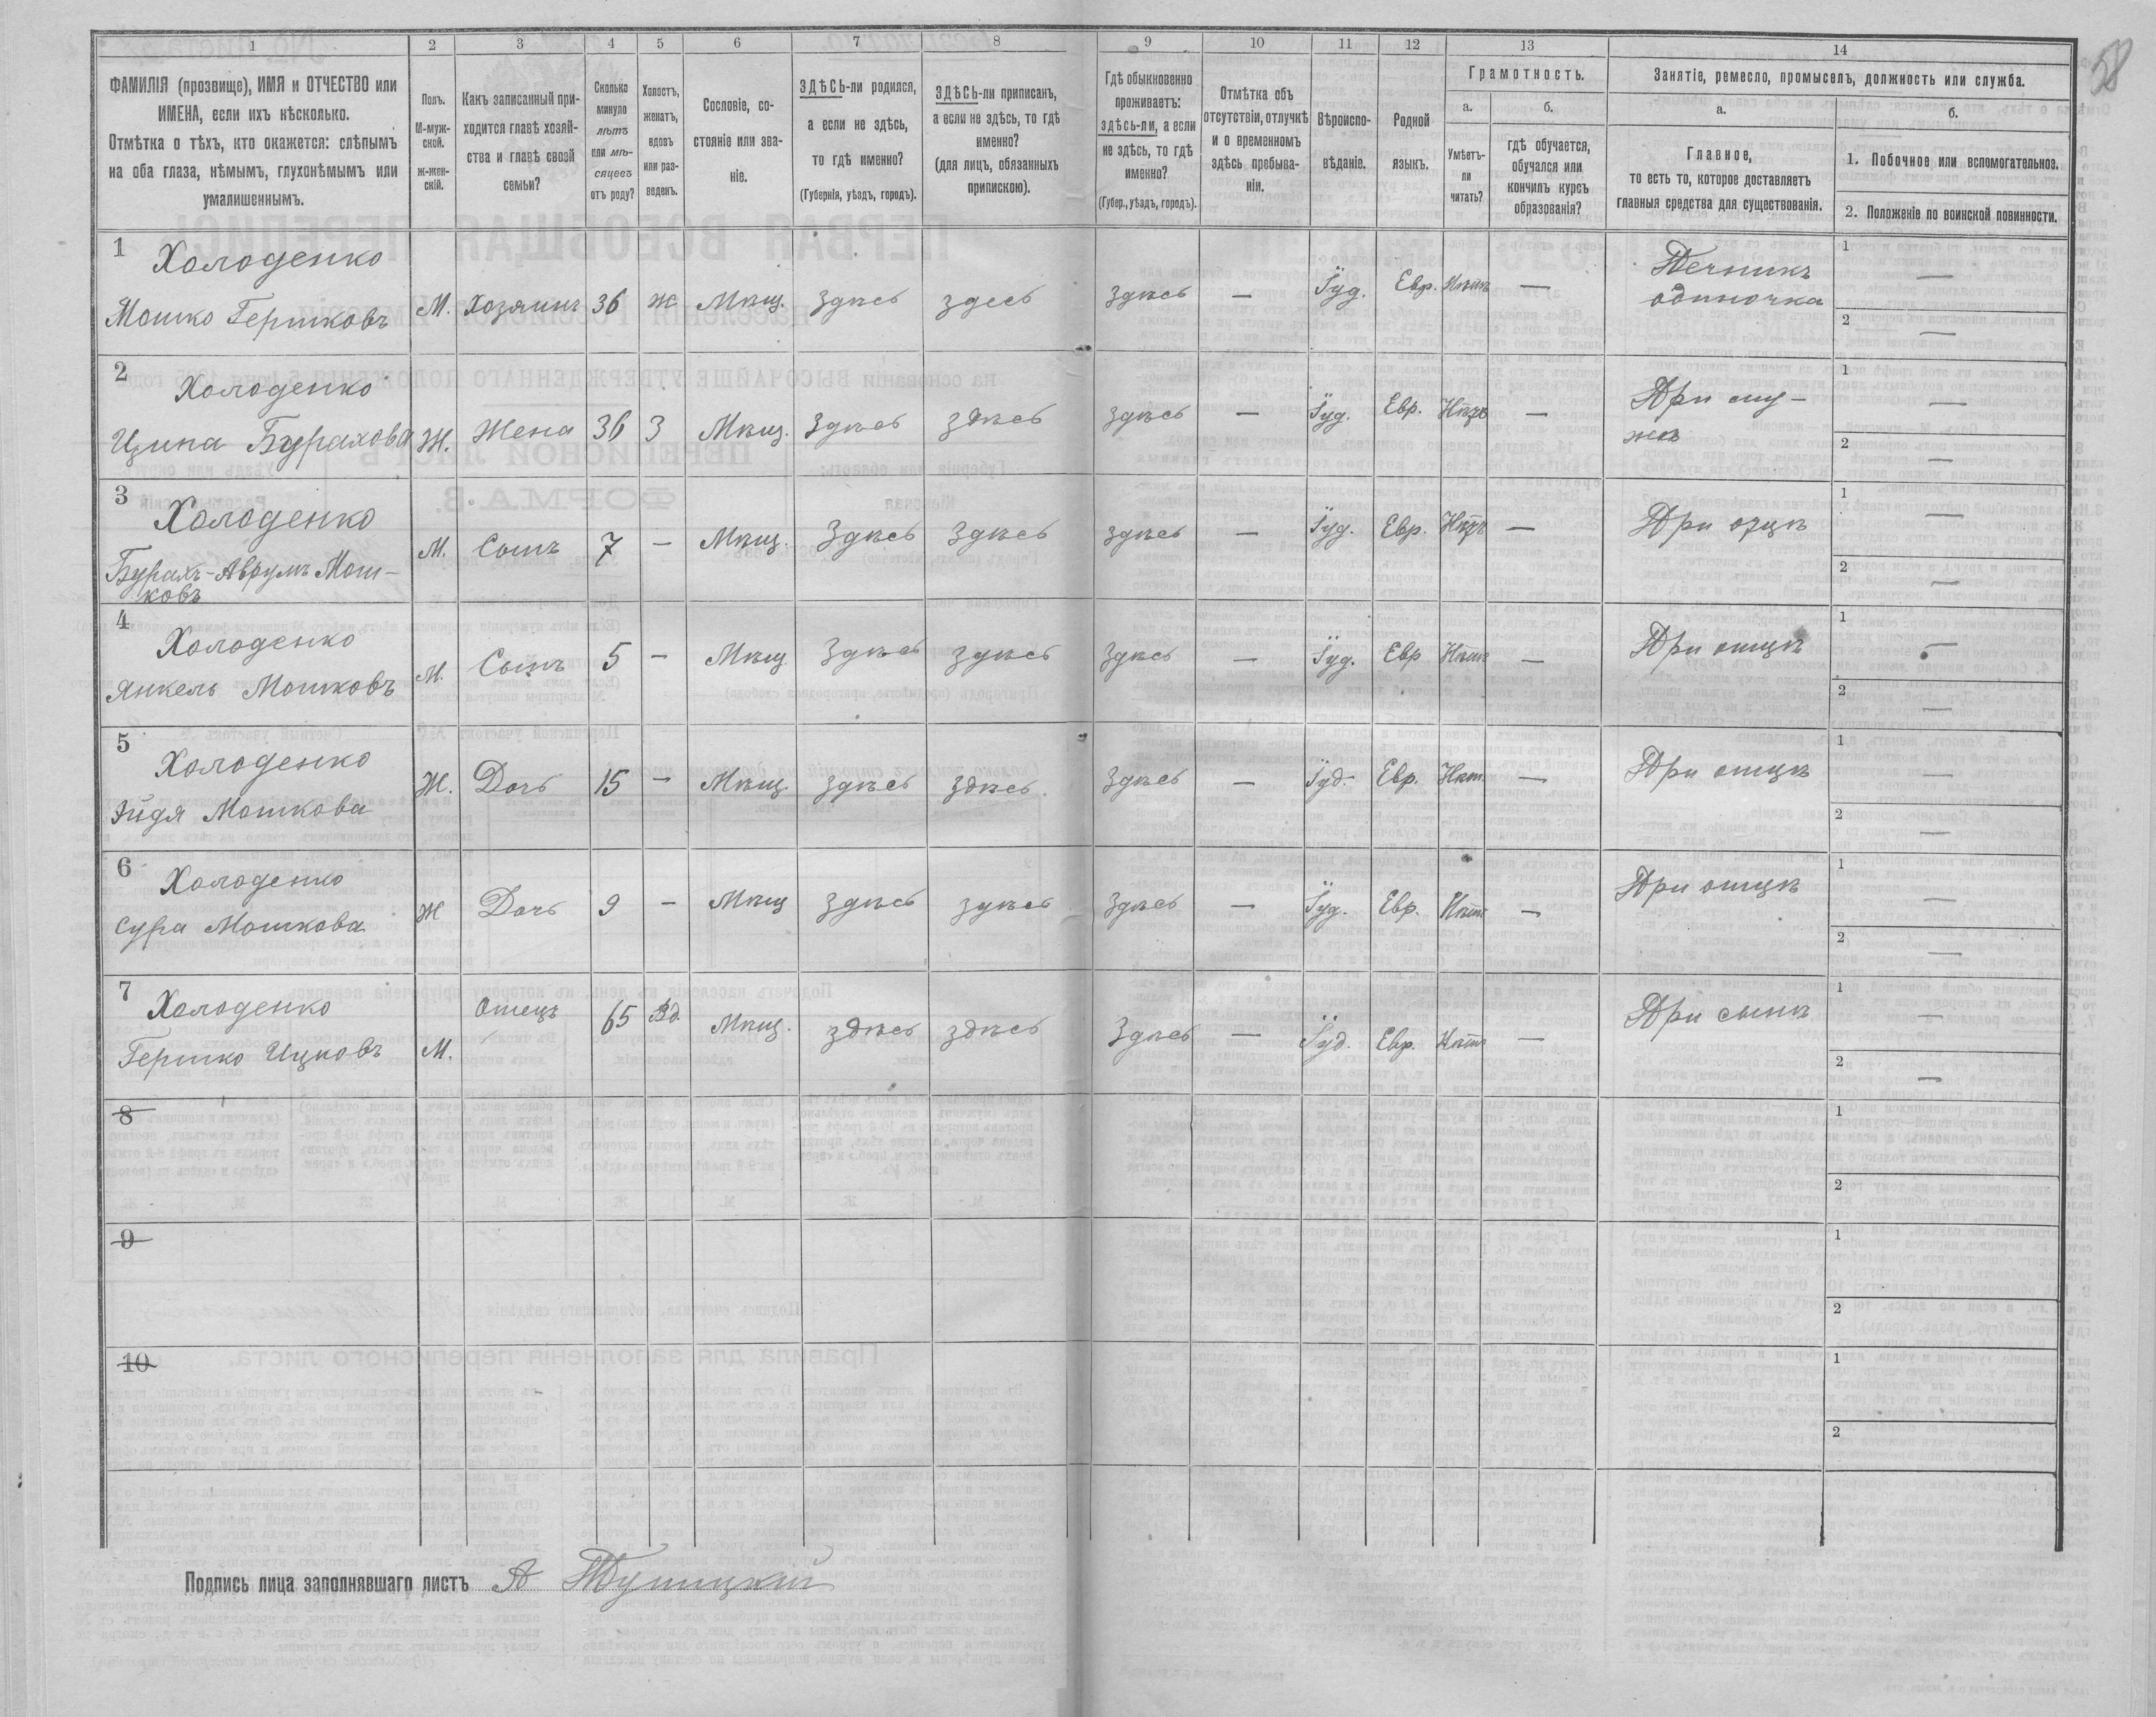 58
1 2 3 4 5 6 7 8 9 10 11 12 13 14
ФАМИЛІЯ (прозвище), ИМЯ и ОТЧЕСТВО или
ИМЕНА, если ихъ нѣсколько.
Отмѣтка о тѣхъ, кто окажется: слѣпымъ
на оба глаза, нѣмымъ, глухонѣмымъ или
умалишеннымъ.
Полъ.
М-муж-
ской.
ж-жен-
скій.
Какъ записанный при-
ходится главѣ хозяй-
ства и главѣ своей
семьи?
Сколько
минуло
лѣтъ
или мѣ-
сяцевъ
отъ роду?
Холостъ,
женатъ,
вдовъ
или раз-
веденъ.
Сословіе, со-
стояніе или зва-
ніе.
ЗДѢСЬ-ли родился,
а если не здѣсь,
то гдѣ именно?
(Губернія, уѣздъ, городъ).
ЗДѢСЬ-ли приписанъ,
а если не здѣсь, то гдѣ
именно?
(для лицъ, обязанныхъ
припискою).
Гдѣ обыкновенно
проживаетъ:
здѣсь-ли, а если
не здѣсь, то гдѣ
именно?
(Губер., уѣздъ, городъ).
Отмѣтка объ
отсутствіи, отлучкѣ
и о временномъ
здѣсь пребыва-
ніи.
Вѣроиспо-
вѣданіе.
Родной
языкъ.
Грамотность.
а.
Умѣетъ-
ли
читать?
б.
гдѣ обучается,
обучался или
кончилъ курсъ
образованія?
Занятіе, ремесло, промыселъ, должность или служба.
а.
Главное,
то есть то, которое доставляетъ
главныя средства для существованія.
б.
1. Побочное или вспомогательное.
2. Положеніе по воинской повинности.
1 Холоденко
Мошко Гершковъ М. Хозяинъ 36 ж Мѣщ. здѣсь здесь здѣсь — Іуд. Евр. Нѣтъ — Печникъ
одиночка
1 —
2 —
2 Холоденко
Ципа Бурахова Ж. Жена 36 З Мѣщ. Здѣсь здѣсь здѣсь — Іуд. Евр. Нѣтъ — При му-
жѣ
1 —
2 —
3 Холоденко
Бурахъ-Аврумъ Мош-
ковъ
М. Сынъ 7 — Мѣщ. Здѣсь Здѣсь здѣсь — Іуд. Евр. Нѣтъ — При отцѣ
1 —
2 —
4 Холоденко
Янкель Мошковъ М. Сынъ 5 — Мѣщ. Здѣсь здѣсь Здѣсь — Іуд. Евр Нѣтъ — При отцѣ
1 —
2 —
5 Холоденко
Эйдя Мошкова Ж. Дочь 15 — Мѣщ. здѣсь здѣсь. Здѣсь — Іуд. Евр. Нѣт. — При отцѣ
1 —
2 —
6 Холоденко
Сура Мошкова Ж Дочь 9 — Мѣщ здѣсь здѣсь Здѣсь — Іуд. Евр. Нѣтъ — При отцѣ
1 —
2 —
7 Холоденко
Гершко Ицковъ М. Отецъ 65 Вд. Мѣщ. здѣсь здѣсь Здѣсь — Іуд. Евр. Нѣтъ — При сынѣ
1 —
2 —
8
1
2
9
1
2
10
1
2
Подпись лица заполнявшаго листъ А